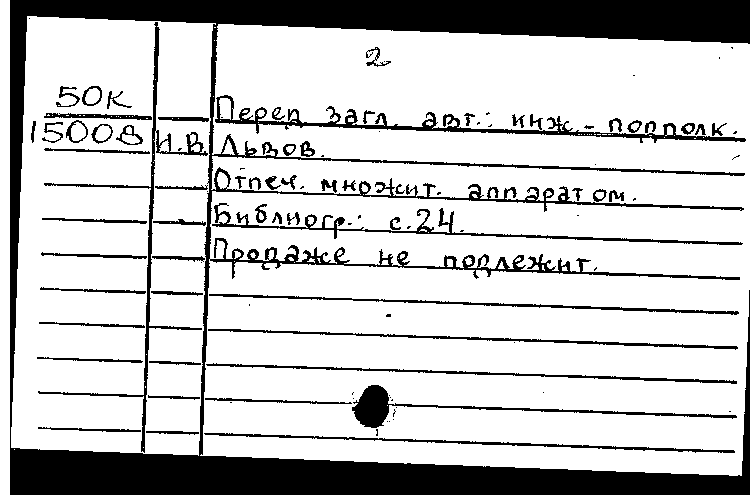 2
50К Перед загл. авт.: инж.-подполк.
1500В И.В. Львов.
Отпеч. множит. аппаратом.
Библиогр.: с.24.
Продаже не подлежит.